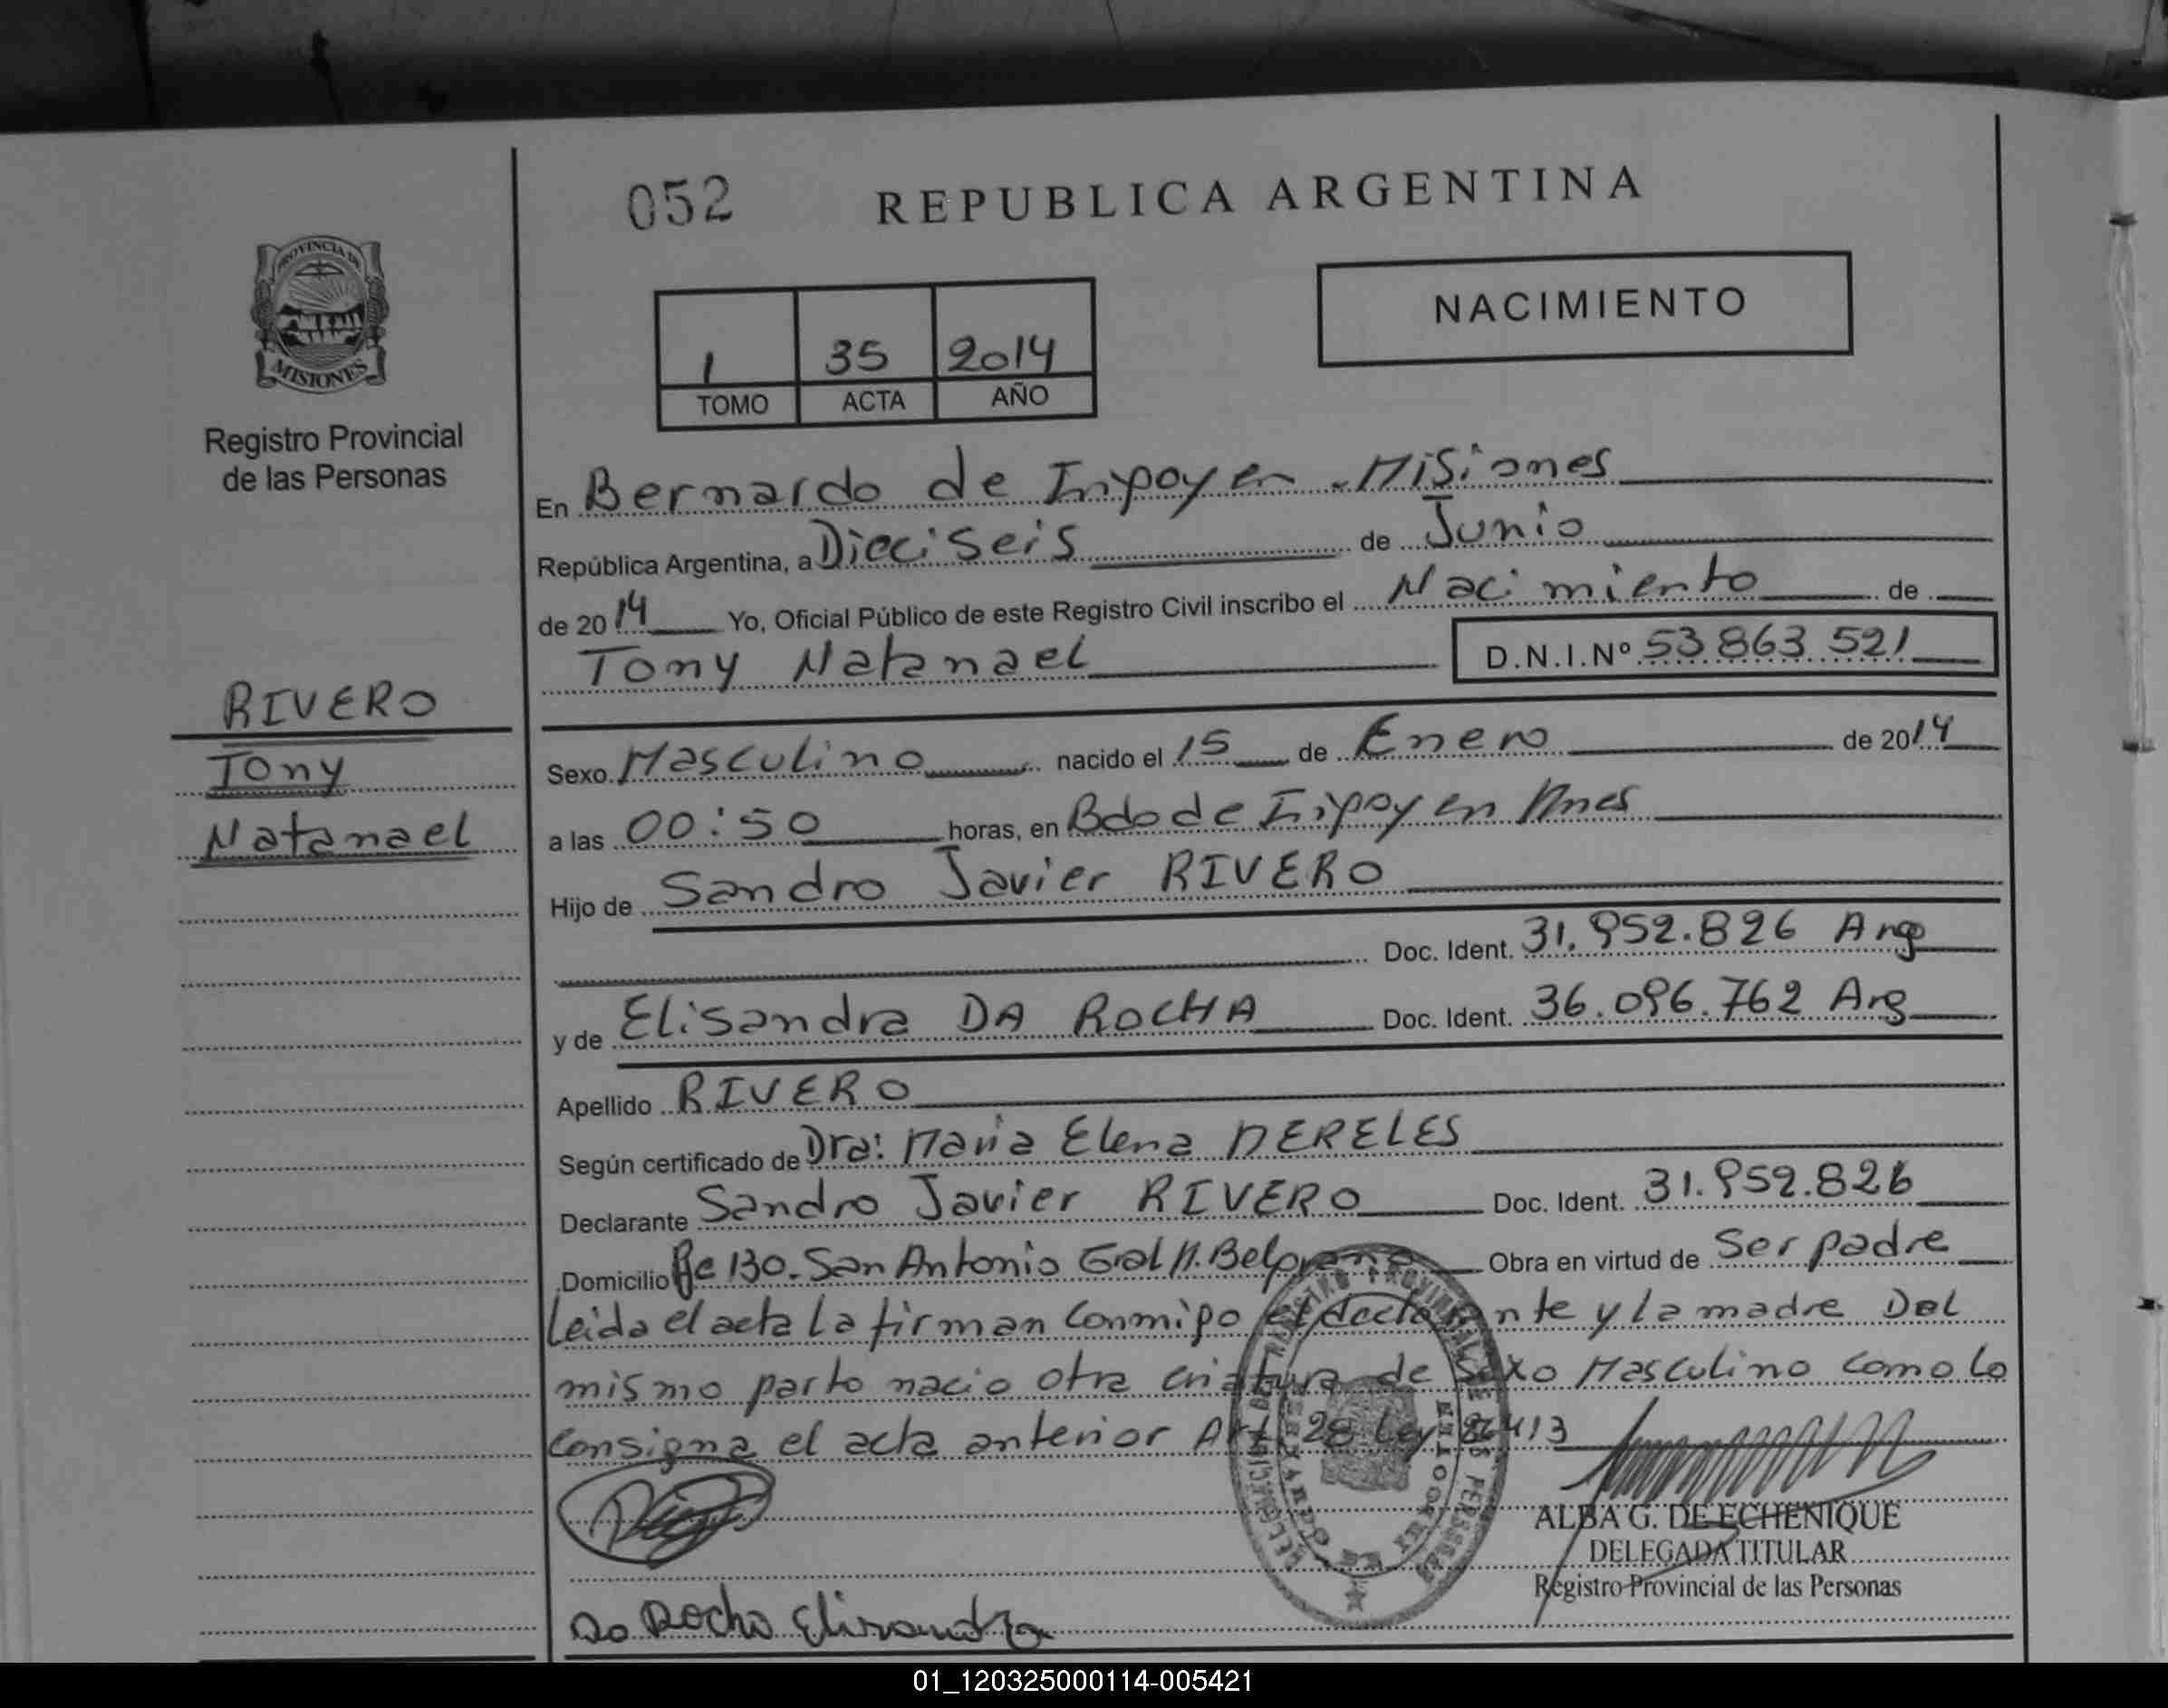 052 REPUBLICA ARGENTINA
PROVINCIA DE
MISIONES
Registro Provincial
de las Personas
NACIMIENTO
1 35 2014
TOMO ACTA AÑO
En Bernardo de Irigoyen - Misiones
República Argentina, a Dieciseis de Junio
de 2014 Yo, Oficial Público de este Registro Civil inscribo el Nacimiento de
Tony Natanael D.N.I.Nº 53 863 521
RIVERO
Tony
Natanael
Sexo Masculino nacido el 15 de Enero de 2014
a las 00:50 horas, en Bdo de Irigoyen Mnes
Hijo de Sandro Javier RIVERO
Doc. Ident. 31.952.826 Arg
y de Elisandra DA ROCHA Doc. Ident. 36.096.762 Arg
Apellido RIVERO
Según certificado de Dra: Maria Elena MERELES
Declarante Sandro Javier RIVERO Doc. Ident. 31.952.826
Domicilio 130. San Antonio Gral M. Belgrano Obra en virtud de Ser padre
Leida el acta la firman conmigo el declarante y la madre Del
mismo parto nacio otra criatura de sexo Masculino como lo
consigna el acta anterior Art. 28 Ley 26413
ALBA G. DE ECHENIQUE
DELEGADA TITULAR
Registro Provincial de las Personas
Da Rocha Elisandra
01_120325000114-005421